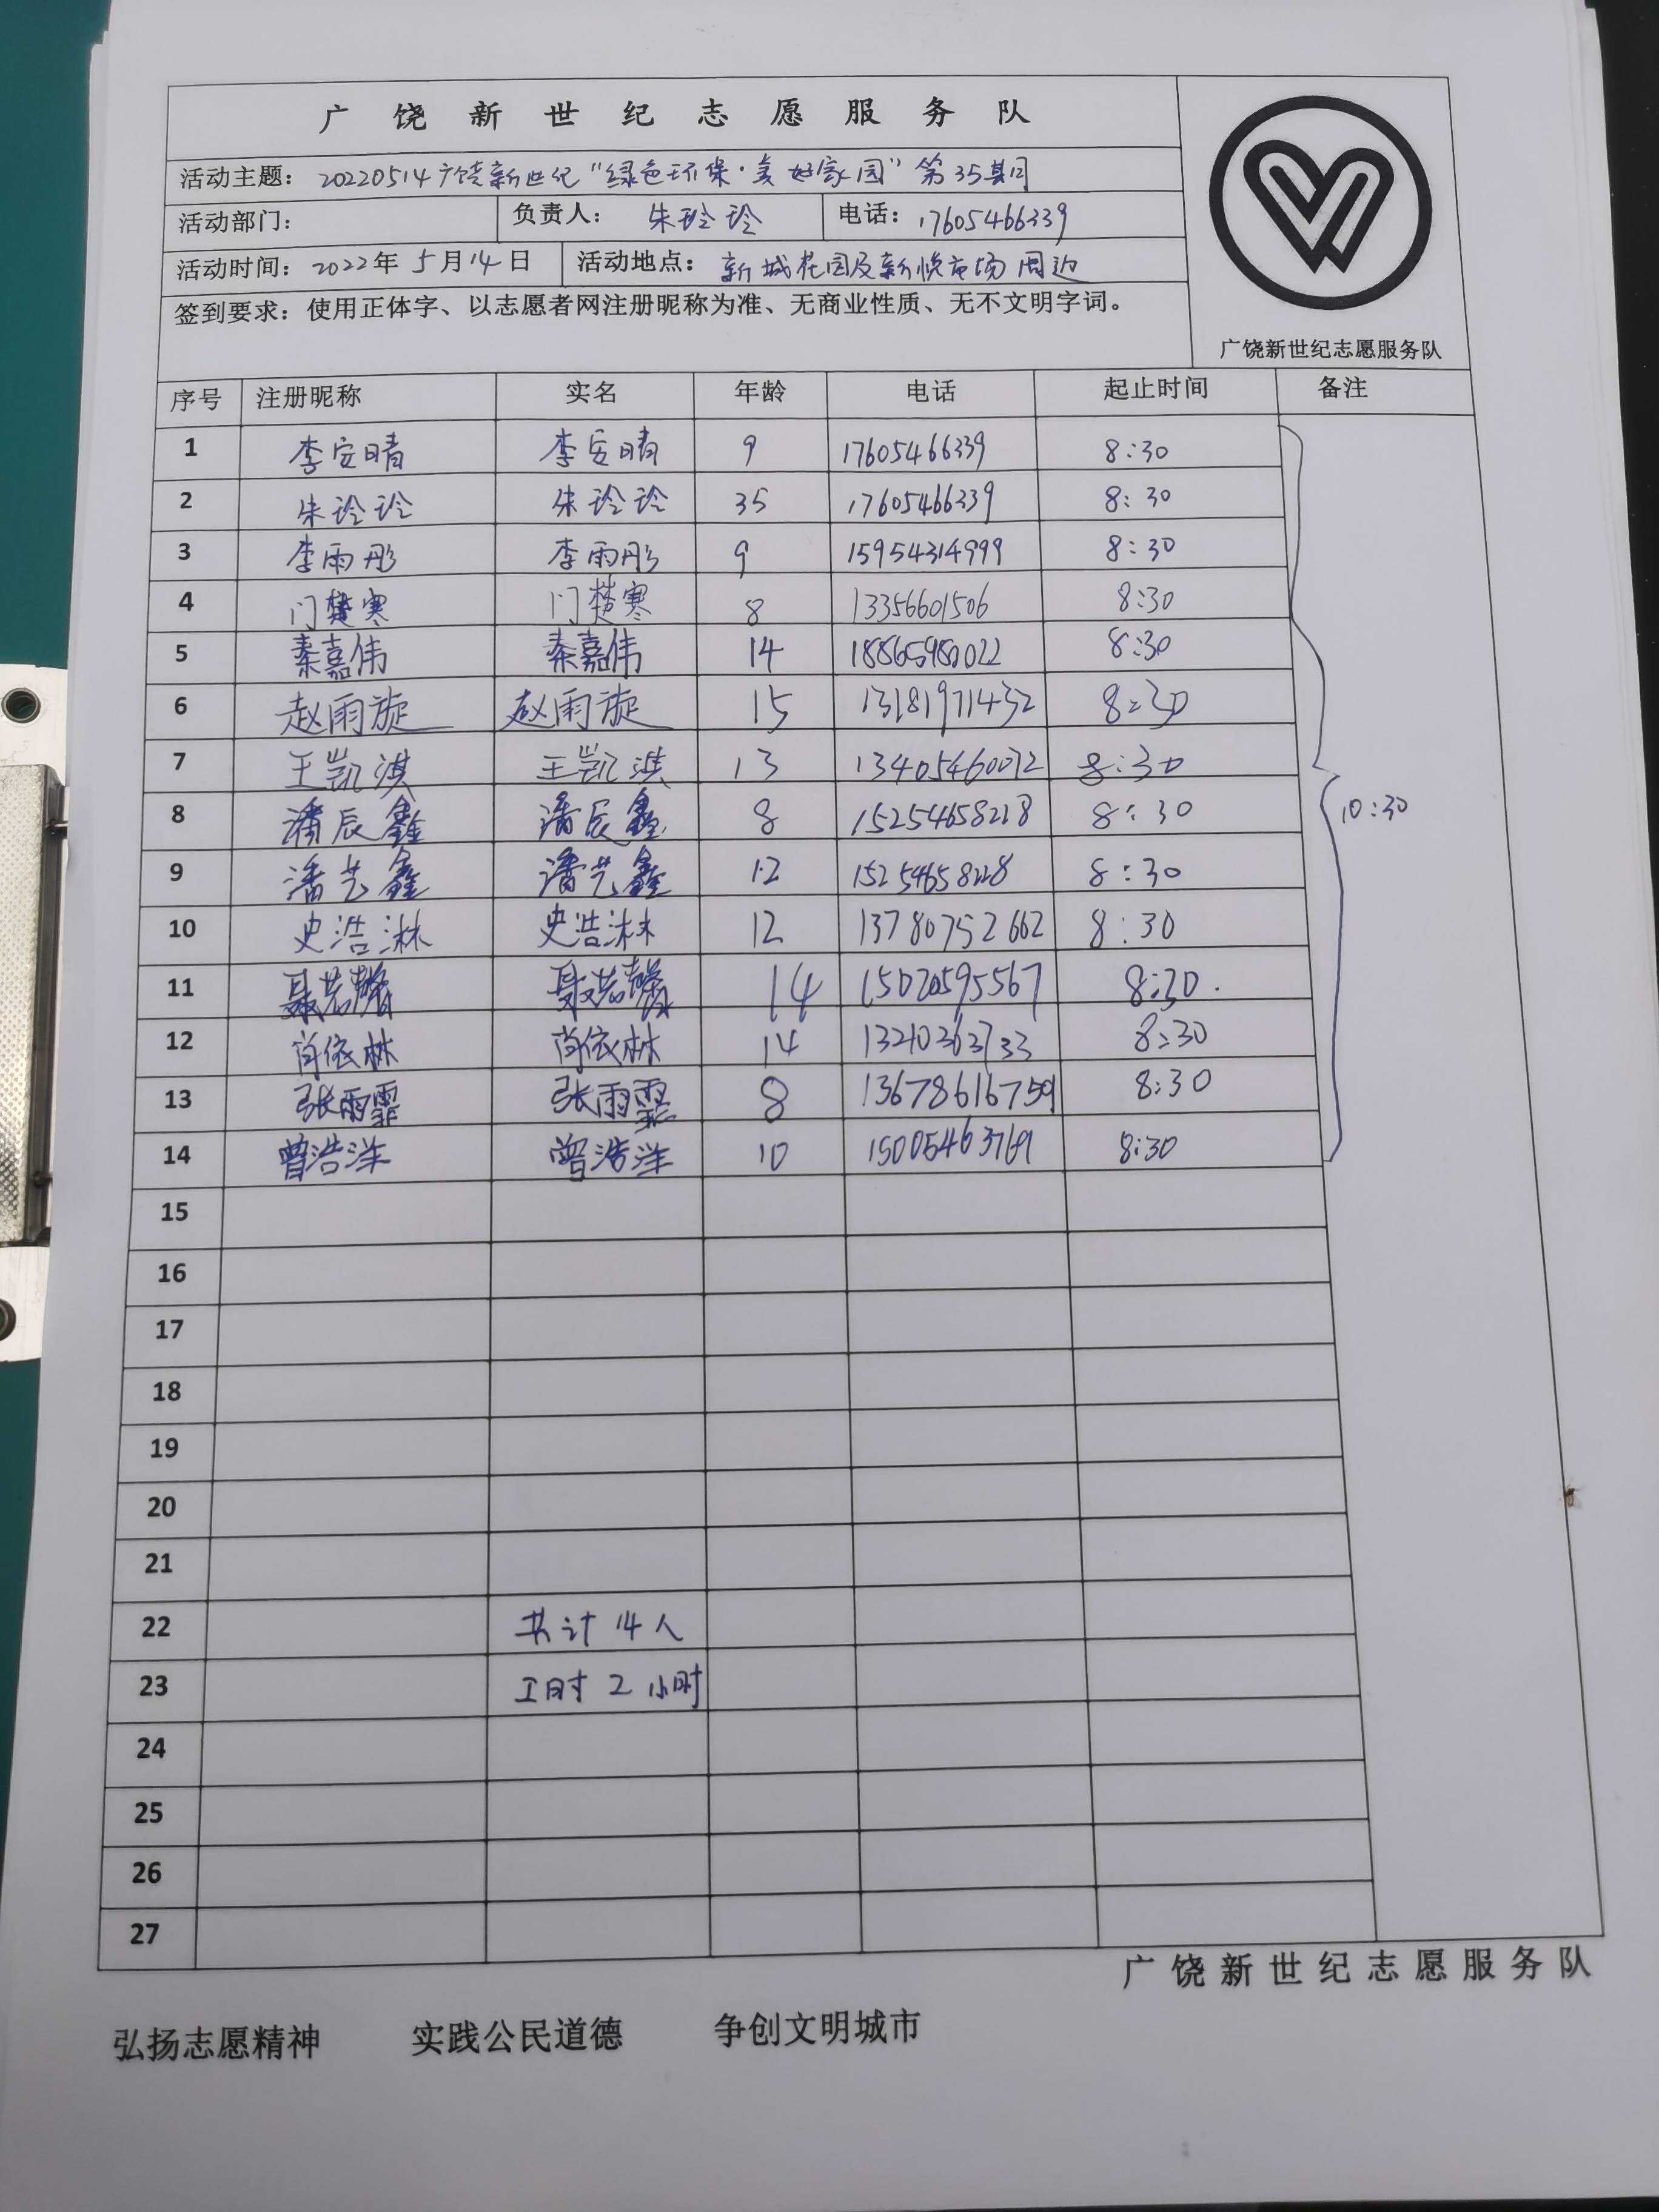 广饶新世纪志愿服务队
活动主题：20220514广饶新世纪“绿色环保·美好家园”第35期
活动部门： 负责人：朱玲玲 电话：17605466339
活动时间：2022年5月14日 活动地点：新城花园及新悦市场周边
签到要求：使用正体字、以志愿者网注册昵称为准、无商业性质、无不文明字词。
广饶新世纪志愿服务队
序号 注册昵称 实名 年龄 电话 起止时间 备注
1 李安晴 李安晴 9 17605466339 8:30
2 朱玲玲 朱玲玲 35 17605466339 8:30
3 李雨彤 李雨彤 9 15954314999 8:30
4 门楚寒 门楚寒 8 13356601506 8:30
5 秦嘉伟 秦嘉伟 14 18865980022 8:30
6 赵雨旋 赵雨旋 15 13181971432 8:30
7 王凯淇 王凯淇 13 13405460072 8:30
8 潘辰鑫 潘辰鑫 8 15254658228 8:30
10:30
9 潘艺鑫 潘艺鑫 12 15254658228 8:30
10 史浩淋 史浩淋 12 13780752662 8:30
11 聂若馨 聂若馨 14 15020595567 8:30
12 肖依林 肖依林 14 13210363733 8:30
13 张雨霏 张雨霏 8 13678616759 8:30
14 曾浩洋 曾浩洋 10 15005463769 8:30
15
16
17
18
19
20
21
22 共计14人
23 工时2小时
24
25
26
27
广饶新世纪志愿服务队
弘扬志愿精神 实践公民道德 争创文明城市